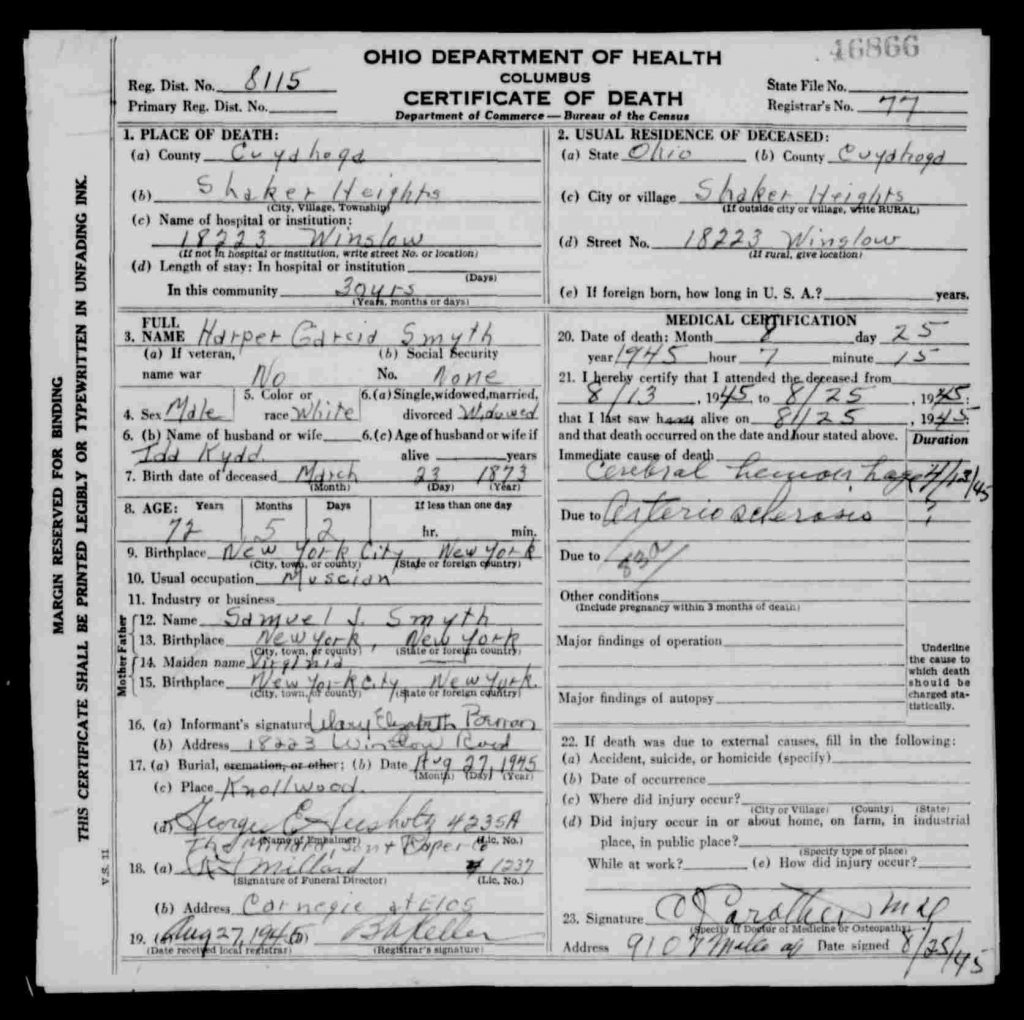 46866
OHIO DEPARTMENT OF HEALTH
COLUMBUS
CERTIFICATE OF DEATH
Department of Commerce — Bureau of the Census
Reg. Dist. No. 8115
Primary Reg. Dist. No.
State File No.
Registrar's No. 77
MARGIN RESERVED FOR BINDING
THIS CERTIFICATE SHALL BE PRINTED LEGIBLY OR TYPEWRITTEN IN UNFADING INK.
V.S. 11
1. PLACE OF DEATH:
(a) County Cuyahoga
(b) Shaker Heights
(City, Village, Township)
(c) Name of hospital or institution:
18223 Winslow
(If not in hospital or institution, write street No. or location)
(d) Length of stay: In hospital or institution
(Days)
In this community 30yrs
(Years, months or days)
2. USUAL RESIDENCE OF DECEASED:
(a) State Ohio (b) County Cuyahoga
(c) City or village Shaker Heights
(If outside city or village, write RURAL)
(d) Street No. 18223 Winslow
(If rural, give location)
(e) If foreign born, how long in U. S. A.? years.
3. FULL NAME Harper Garcia Smyth
(a) If veteran, name war No
(b) Social Security No. None
4. Sex Male
5. Color or race White
6. (a) Single, widowed, married, divorced Widowed
6. (b) Name of husband or wife
Ida Kydd
6. (c) Age of husband or wife if alive years
7. Birth date of deceased March 23 1873
(Month) (Day) (Year)
8. AGE: Years Months Days If less than one day
72 5 2 hr. min.
9. Birthplace New York City, New York
(City, town, or county) (State or foreign country)
10. Usual occupation Muscian
11. Industry or business
Father
12. Name Samuel J. Smyth
13. Birthplace New York, New York
(City, town, or county) (State or foreign country)
Mother
14. Maiden name Virginia
15. Birthplace New York City New York.
(City, town, or county) (State or foreign country)
16. (a) Informant's signature Mary Elizabeth
(b) Address 18223 Winslow Road
17. (a) Burial, cremation, or other; (b) Date Aug 27, 1945
(Month) (Day) (Year)
(c) Place Knollwood.
(d) George E. 4235A
(Name of Embalmer) (Lic. No.)
The Millard Son &
18. (a) Millard # 1237
(Signature of Funeral Director) (Lic. No.)
(b) Address Carnegie at
19. (a) Aug 27, 1945 (b) Keller
(Date received local registrar) (Registrar's signature)
MEDICAL CERTIFICATION
20. Date of death: Month 8 day 25
year 1945 hour 7 minute 15
21. I hereby certify that I attended the deceased from
8/13, 1945 to 8/25, 1945:
that I last saw alive on 8/25, 1945:
and that death occurred on the date and hour stated above.
Duration
Immediate cause of death
Cerebral hemorrhage
Due to Arteriosclerosis ?
Due to
Other conditions
(Include pregnancy within 3 months of death)
Major findings of operation
Major findings of autopsy
Underline the cause to which death should be charged statistically.
22. If death was due to external causes, fill in the following:
(a) Accident, suicide, or homicide (specify)
(b) Date of occurrence
(c) Where did injury occur?
(City or Village) (County) (State)
(d) Did injury occur in or about home, on farm, in industrial
place, in public place?
(Specify type of place)
While at work? (e) How did injury occur?
23. Signature Carothers MD
(Specify if Doctor of Medicine or Osteopathy)
Address Date signed 8/25/45